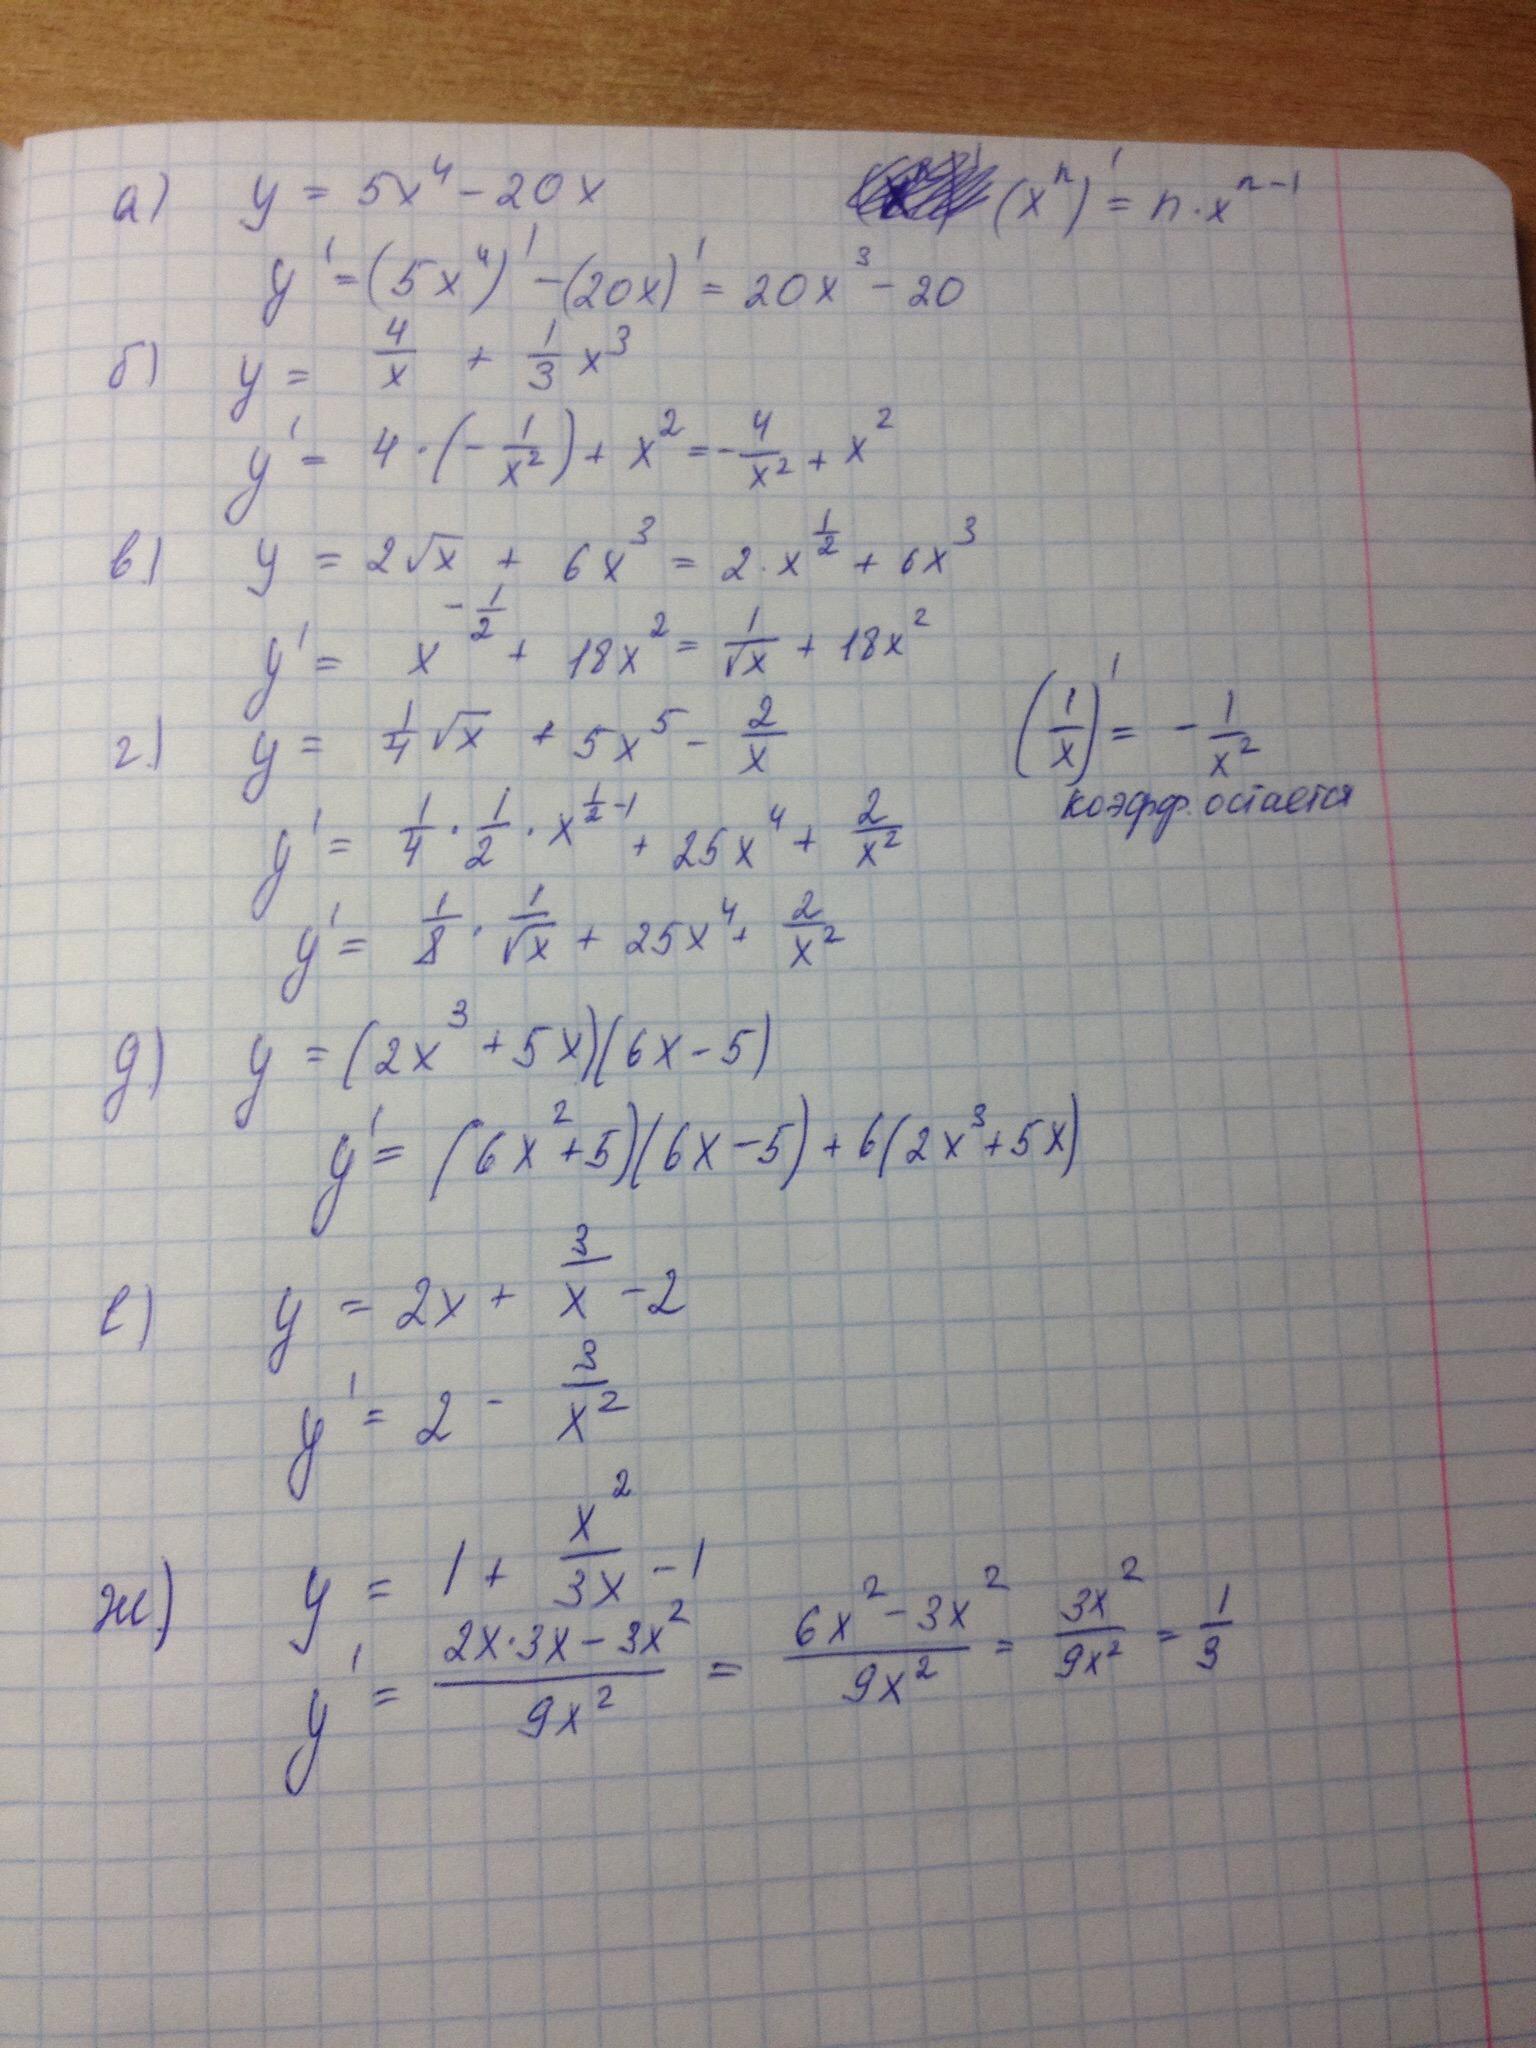 а) y = 5x⁴ - 20x (xⁿ)' = n·xⁿ⁻¹
y' = (5x⁴)' - (20x)' = 20x³ - 20
б) y = 4/x + 1/3 x³
y' = 4·(-1/x²) + x² = -4/x² + x²
в) y = 2√x + 6x³ = 2·x^(1/2) + 6x³
y' = x^(-1/2) + 18x² = 1/√x + 18x²
г.) y = 1/4 √x + 5x⁵ - 2/x (1/x)' = -1/x²
коэфф. остается
y' = 1/4 · 1/2 · x^(1/2 - 1) + 25x⁴ + 2/x²
y' = 1/8 · 1/√x + 25x⁴ + 2/x²
д) y = (2x³ + 5x)(6x - 5)
y' = (6x² + 5)(6x - 5) + 6(2x³ + 5x)
е) y = 2x + 3/x - 2
y' = 2 - 3/x²
ж) y = 1 + x²/3x - 1
y' = (2x·3x - 3x²)/9x² = (6x² - 3x²)/9x² = 3x²/9x² = 1/3